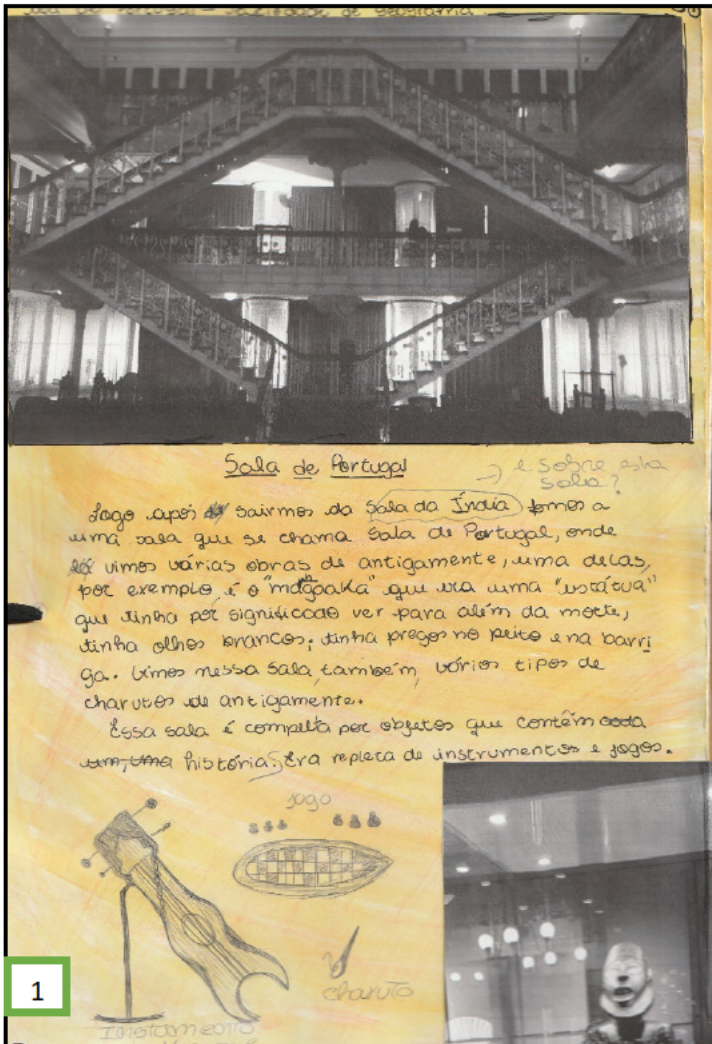 Sala de Portugal
→ e sobre esta
sala?
Logo após sairmos da Sala da Índia fomos a
uma sala que se chama Sala de Portugal, onde
vimos várias obras de antigamente, uma delas,
por exemplo é o que era uma "estátua"
que tinha por significado ver para além da morte,
tinha olhos brancos; tinha pregos no peito e na barri
ga. Vimos nessa sala, também, vários tipos de
charutos de antigamente.
Essa sala é completa por objetos que contêm cada
um, uma história. Era repleta de instrumentos e jogos.
jogo
charuto
Instrumento
1